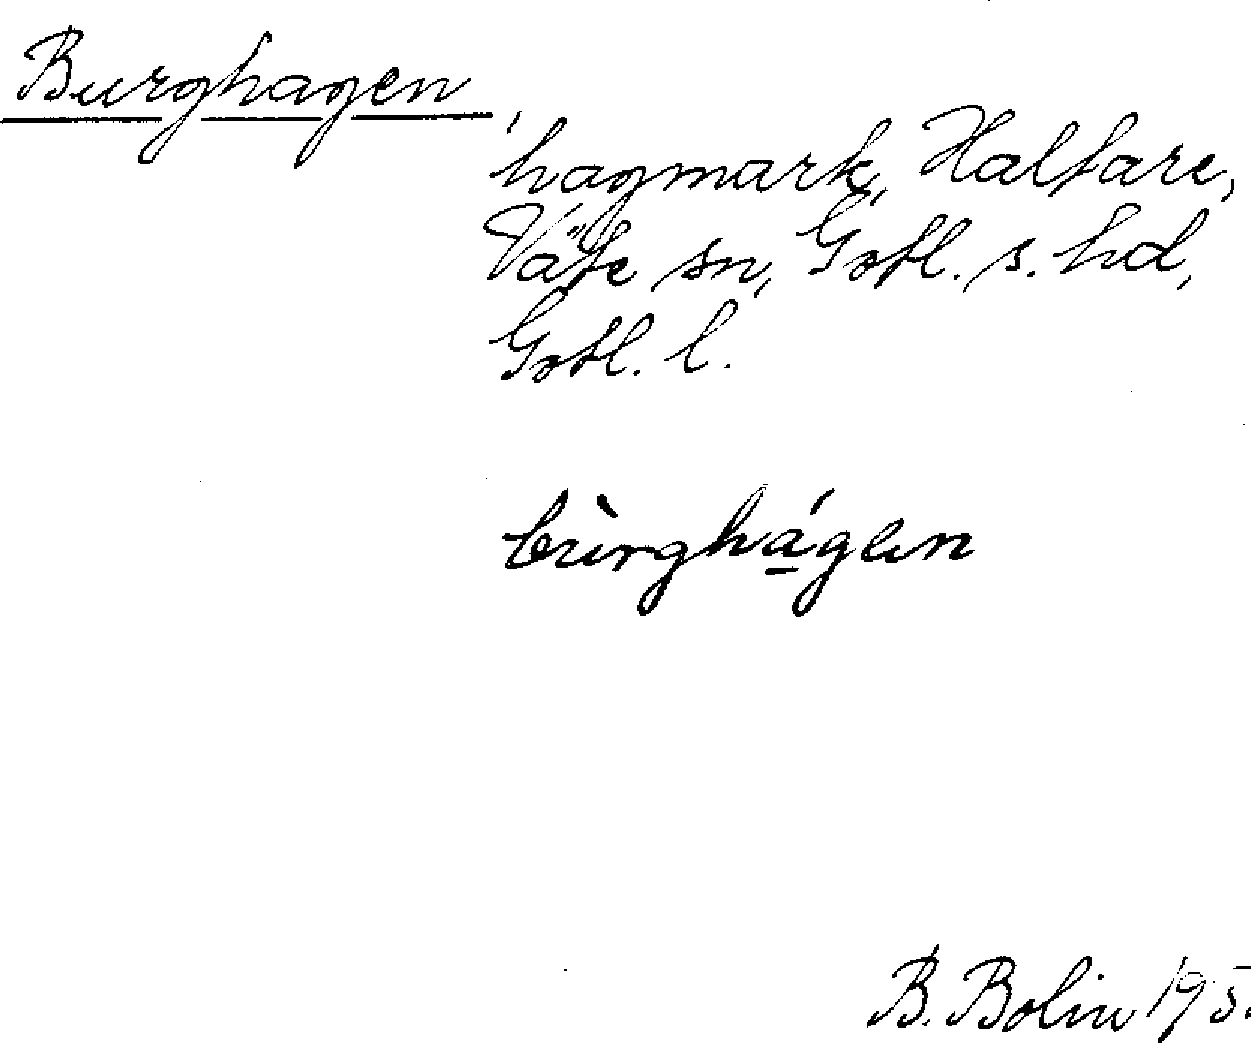 Burghagen,
hagmark, Halfare,
Väte sn, Gotl. s. hd,
Gotl. l.
bùrghágen
B. Bolin 195